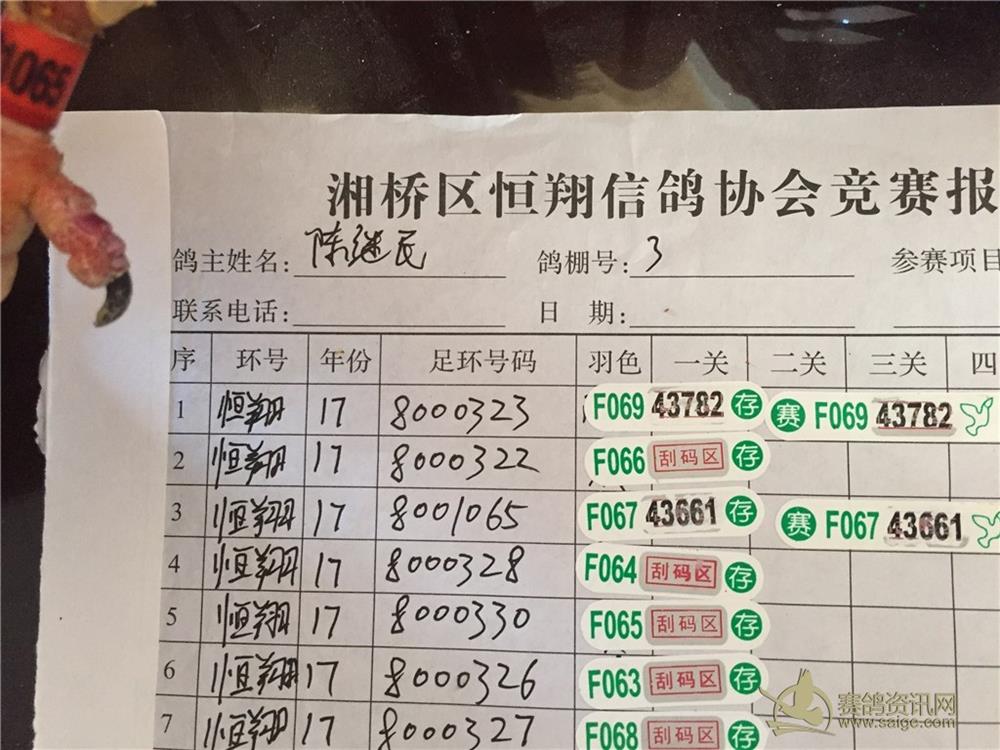 1065
湘桥区恒翔信鸽协会竞赛报
鸽主姓名: 陈继民 鸽棚号: 3 参赛项目
联系电话: 日 期:
序 环号 年份 足环号码 羽色 一关 二关 三关 四
1 恒翔 17 8000323 F069 43782 存 赛 F069 43782
2 恒翔 17 8000322 F066 刮码区 存
3 恒翔 17 8001065 F067 43661 存 赛 F067 43661
4 恒翔 17 8000328 F064 刮码区 存
5 恒翔 17 8000330 F065 刮码区 存
6 恒翔 17 8000326 F063 刮码区 存
7 恒翔 17 8000327 F068 刮码区 存
赛鸽资讯网
www.saigc.com